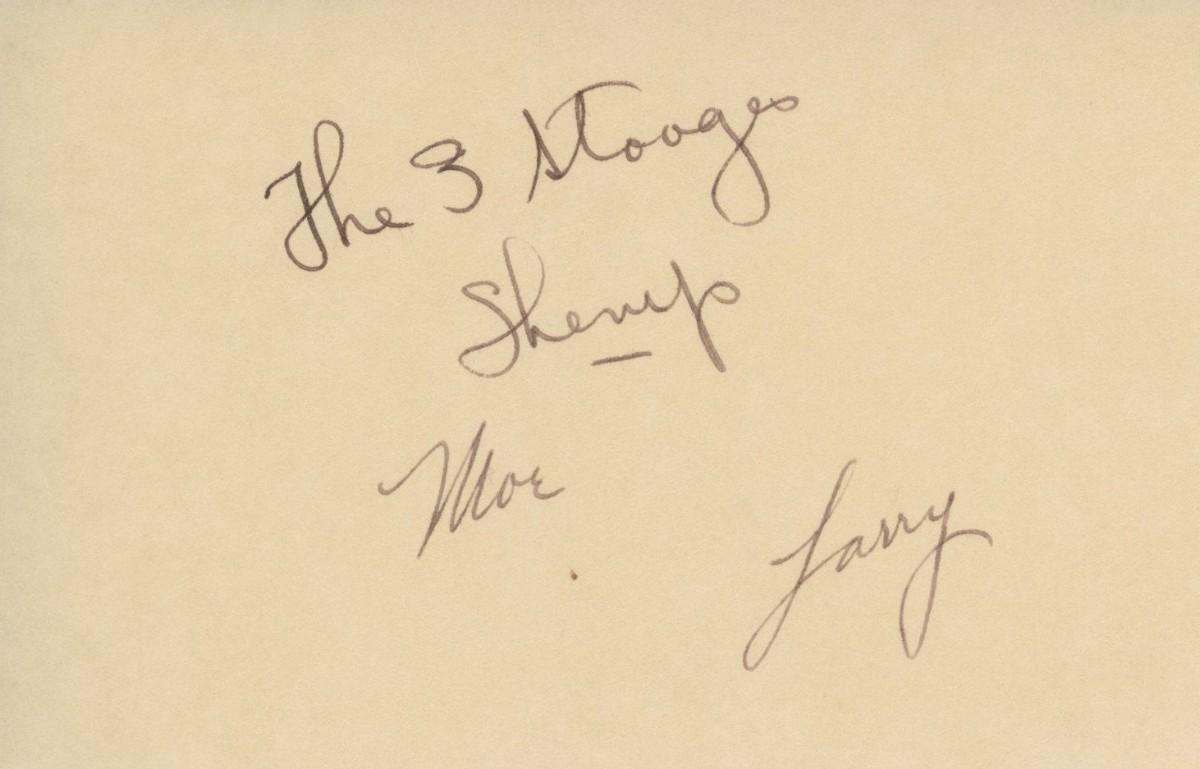 The 3 Stooges
Shemp
Moe
Larry